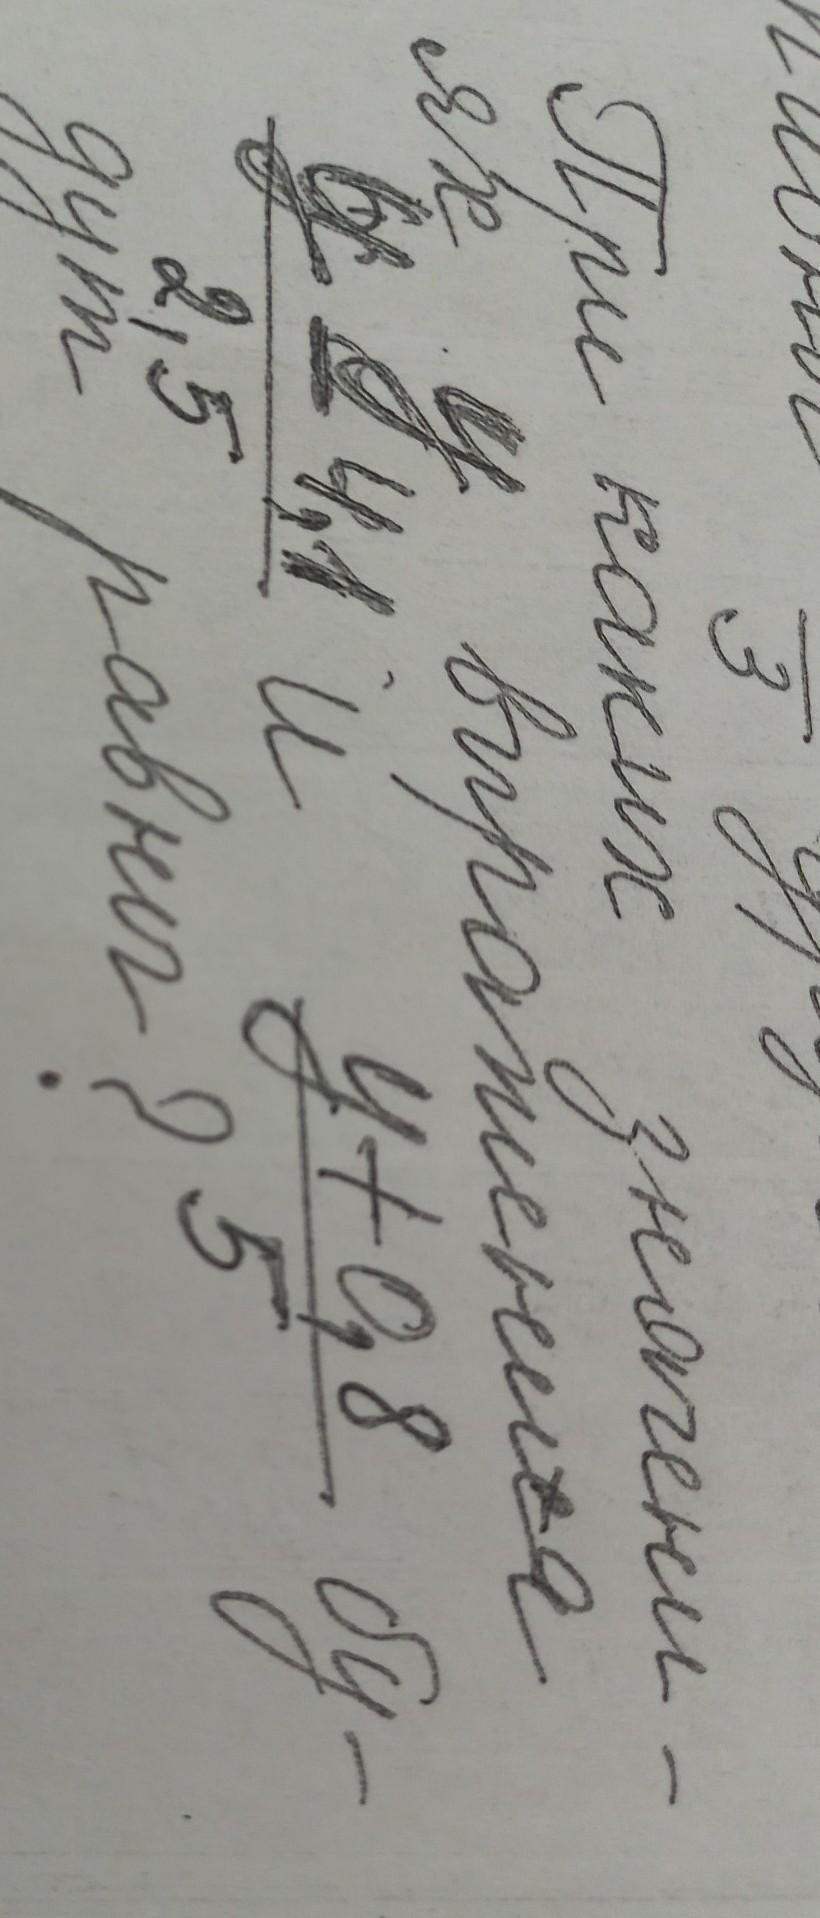 3
При каких значени-
ях у выражения
у - 4,1 и у + 0,8 бу-
2,5 5
дут равны?